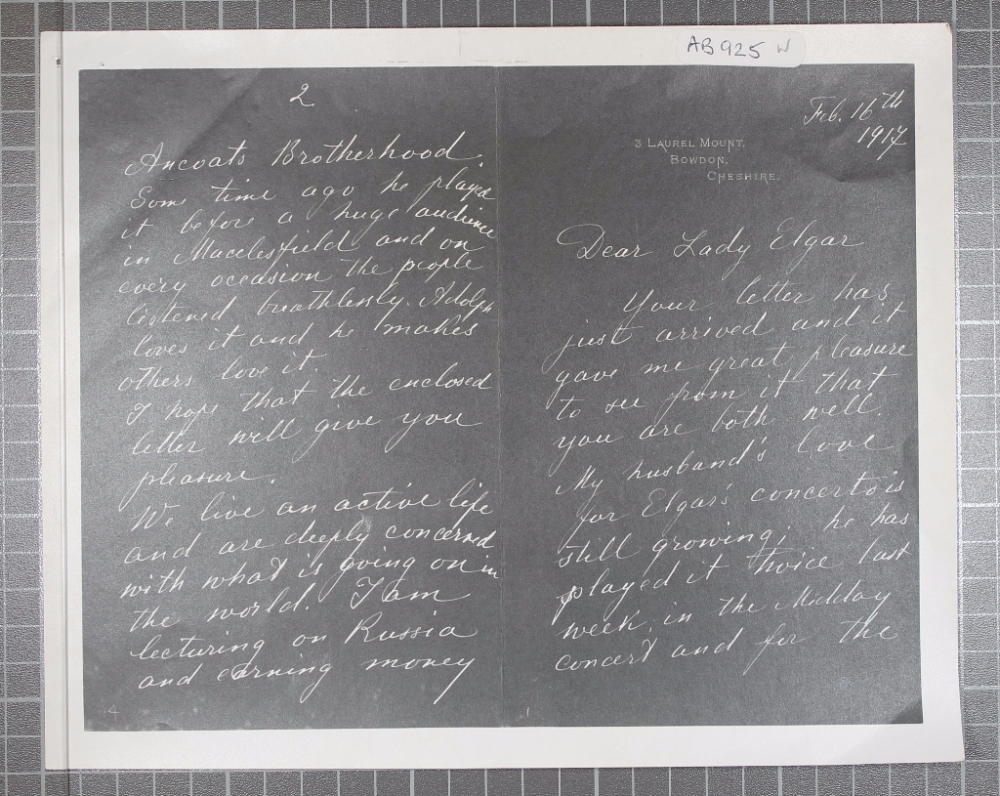 AB925 W
Feb. 16th
1917
3 LAUREL MOUNT,
BOWDON,
CHESHIRE.
Dear Lady Elgar
Your letter has
just arrived and it
gave me great pleasure
to see from it that
you are both well
My husband's love
for Elgar's concerto is
still growing; he has
played it twice last
week, in the Midday
concert and for the
1
2
Ancoats Brotherhood.
Some time ago he played
it before a huge audience
in Macclesfield and on
every occasion the people
listened breathlessly. Adolph
loves it and he makes
others love it.
I hope that the enclosed
letter will give you
pleasure.
We live an active life
and are deeply concerned
with what is going on in
the world. I am
lecturing on Russia
and earning money
4